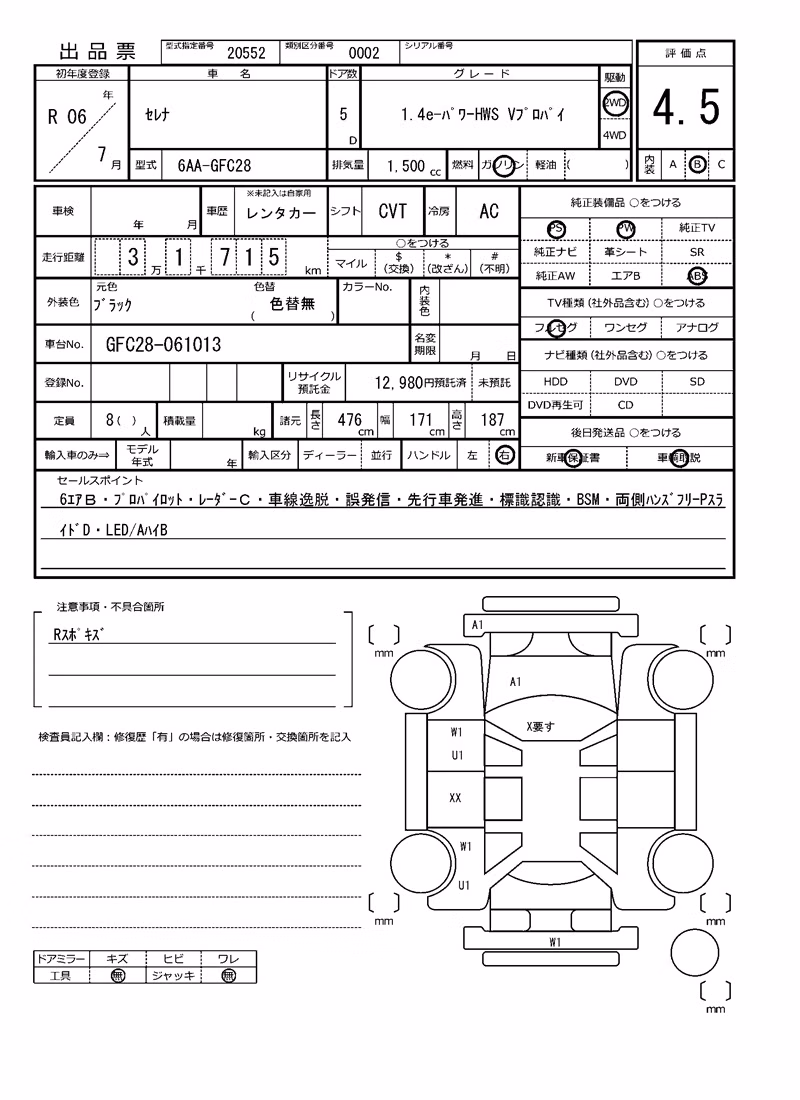 出品票 型式指定番号 20552 類別区分番号 0002 シリアル番号
評価点
4.5
内装 A B C
初年度登録 車名 ドア数 グレード 駆動
R 06 年 7 月 セレナ 5 D 1.4e-ﾊﾟﾜｰHWS Vﾌﾟﾛﾊﾟｲ 2WD
4WD
型式 6AA-GFC28 排気量 1,500 cc 燃料 ガソリン 軽油 ( )
車検 年 月 車歴 ※未記入は自家用 レンタカー シフト CVT 冷房 AC
走行距離 3 万 1 千 7 1 5 km
○をつける
マイル $ (交換) * (改ざん) # (不明)
外装色 元色 ﾌﾞﾗｯｸ 色替 ( 色替無 ) カラーNo. 内装色
車台No. GFC28-061013 名変期限 月 日
登録No. リサイクル預託金 12,980円預託済 未預託
定員 8( ) 人 積載量 kg 諸元 長さ 476 cm 幅 171 cm 高さ 187 cm
輸入車のみ⇒ モデル年式 年 輸入区分 ディーラー 並行 ハンドル 左 右
純正装備品 ○をつける
PS PW 純正TV
純正ナビ 革シート SR
純正AW エアB ABS
TV種類(社外品含む)○をつける
フルセグ ワンセグ アナログ
ナビ種類(社外品含む)○をつける
HDD DVD SD
DVD再生可 CD
後日発送品 ○をつける
新車保証書 車輌取説
セールスポイント
6ｴｱB・ﾌﾟﾛﾊﾟｲﾛｯﾄ・ﾚｰﾀﾞｰC・車線逸脱・誤発信・先行車発進・標識認識・BSM・両側ﾊﾝｽﾞﾌﾘｰPｽﾗ
ｲﾄﾞD・LED/AﾊｲB
注意事項・不具合箇所
Rｽﾎﾟｷｽﾞ
検査員記入欄：修復歴「有」の場合は修復箇所・交換箇所を記入
A1
mm mm
A1
X要す
W1
U1
XX
W1
U1
mm mm
W1
mm
ドアミラー キズ ヒビ ワレ
工具 無 ジャッキ 無